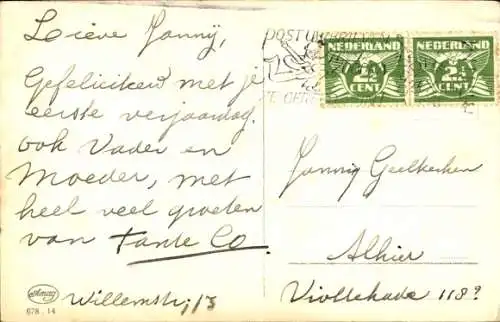 Lieve Janny,
Gefeliciteerd met je
eerste verjaardag.
ook Vader en
Moeder, met
heel veel groeten
van Tante Co.
Willemstr. 13
Amag
678 - 14
POST
NEDERLAND
2½
CENT
NEDERLAND
2½
CENT
Janny Geelkerken
Alhier
118